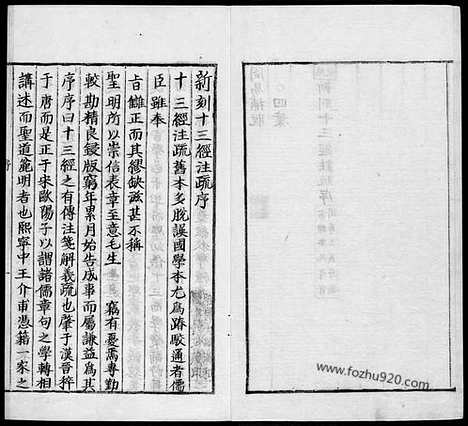 新刻十三經注疏序
十三經注疏舊本多脫誤國學本尤爲踳駁邇者儒
臣雖奉
旨讎正而繆缺滋甚不稱
聖明所以崇信表章至意毛生 竊有憂焉專勤
較勘精良鋟版窮年累月始告成事而屬謙益爲其
序序曰十三經之有傳注箋解義疏也肇于漢晉粹
于唐而是正于宋歐陽子以謂諸儒章句之學轉相
講述而聖道觕明者也熙寧中王介甫憑藉一家之
www.fozhu920.com